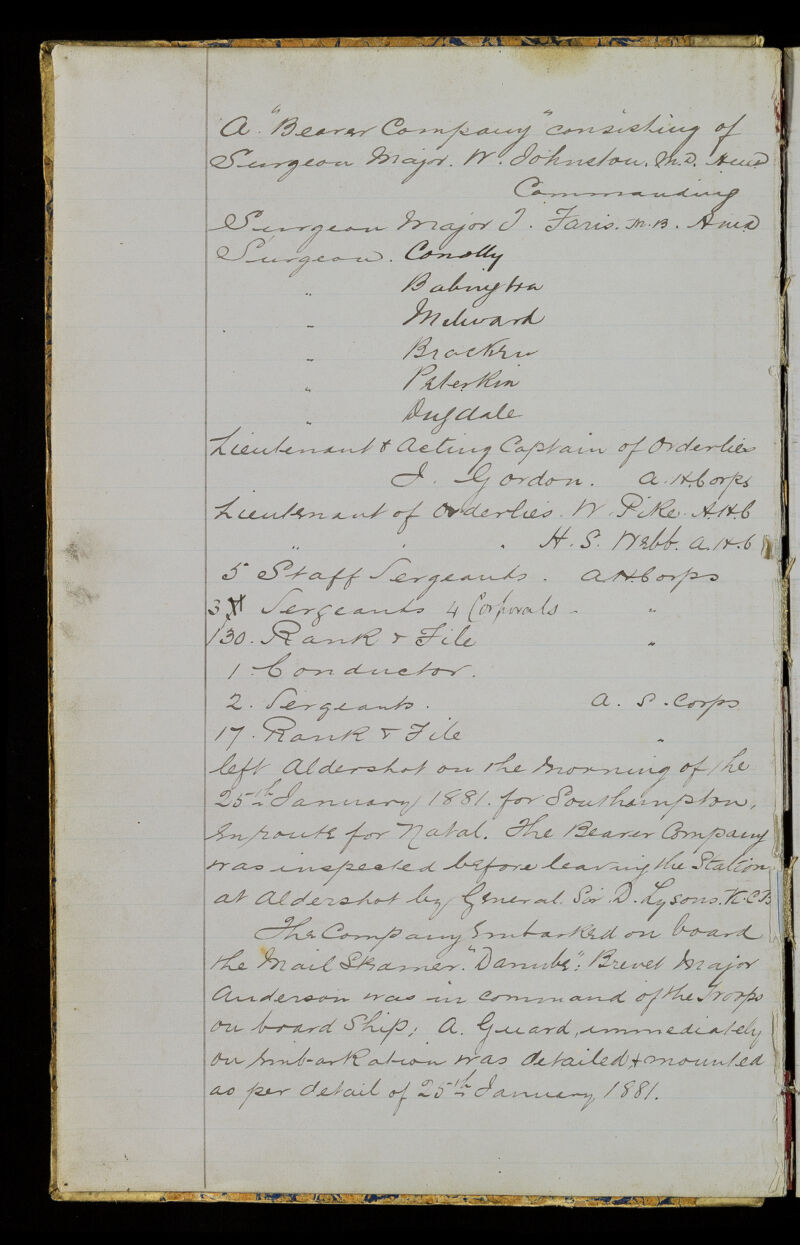 A. "Bearer Company" consisting of
Surgeon Major. W. Johnston. M.D. A.M.D
Commanding
Surgeon Major J. Faris. M.B. A.M.D
Surgeon. Conolly
" Babington
" Melward
" Bracken
" Peterkin
" Dugdale
Lieutenant & Acting Captain of Orderlies
J. Gordon. A.H. Corps
Lieutenant of Orderlies. W. Pike. A.H.C
" " " H. S. Webb. A.H.C
5 Staff Sergeants. A.H. Corps
3 Sergeants 4 Corporals - "
130. Rank & File "
1. Conductor.
2. Sergeants. A. S. Corps
17. Rank & File "
left Aldershot on the Morning of the
25th January 1881. for Southampton,
Enroute for Natal. The Bearer Company
was inspected before leaving the Station
at Aldershot by General Sir D. Lysons. K.C.B
The Company Embarked on board
the Mail Steamer. "Danube"; Brevet Major
Anderson was in command of the Troops
on board Ship; A. Guard, immediately
on Embarkation was detailed & mounted
as per detail of 25th January 1881.